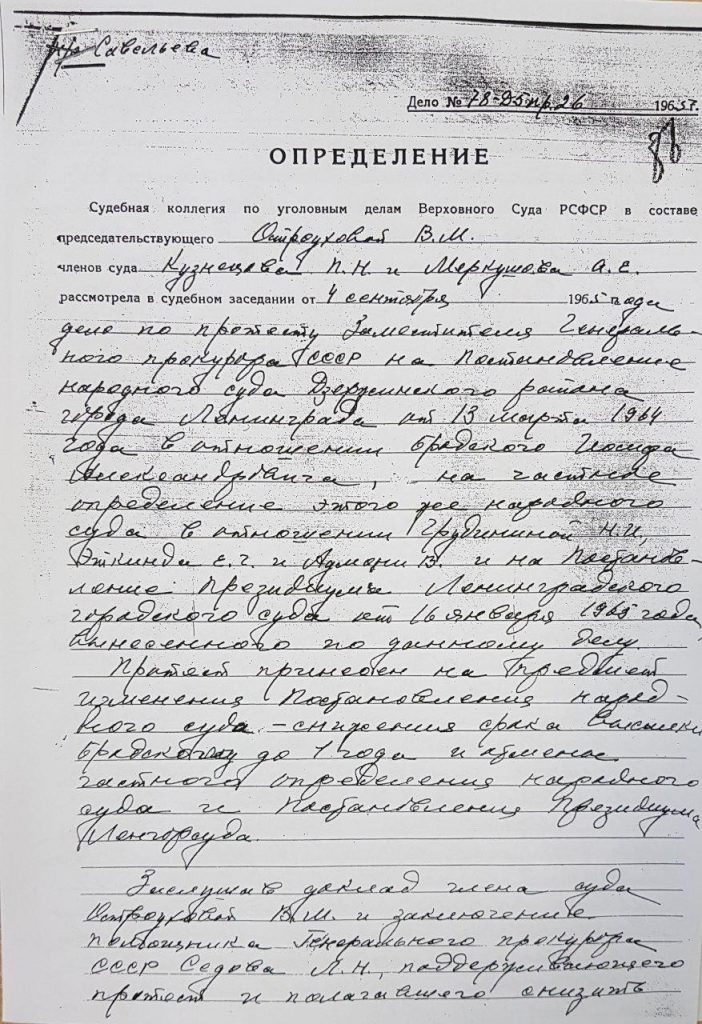 Савельева
Дело № 78-Д5пр.26 1965 г.
ОПРЕДЕЛЕНИЕ
Судебная коллегия по уголовным делам Верховного Суда РСФСР в составе
председательствующего Остроуховой В.М.
членов суда Кузнецова П.Н. и Меркушова А.Е.
рассмотрела в судебном заседании от 4 сентября 1965 года
дело по протесту Заместителя Генераль-
ного прокурора СССР на Постановление
народного суда Дзержинского района
города Ленинграда от 13 марта 1964
года в отношении Бродского Иосифа
Александровича, на частное
определение этого же народного
суда в отношении Грудининой Н.И,
Эткинда Е.Г. и Адмони В. и на Постанов-
ление Президиума Ленинградского
городского суда от 16 января 1965 года,
вынесенного по данному делу.
Протест принесен на предмет
изменения Постановления народ-
ного суда - снижения срока высылки
Бродскому до 1 года и отмены
частного определения народного
суда и Постановления Президиума
Ленгорсуда.
Заслушав доклад члена суда
Остроуховой В.М. и заключение
помощника Генерального прокурора
СССР Седова Л.Н., поддерживающего
протест и полагавшего снизить